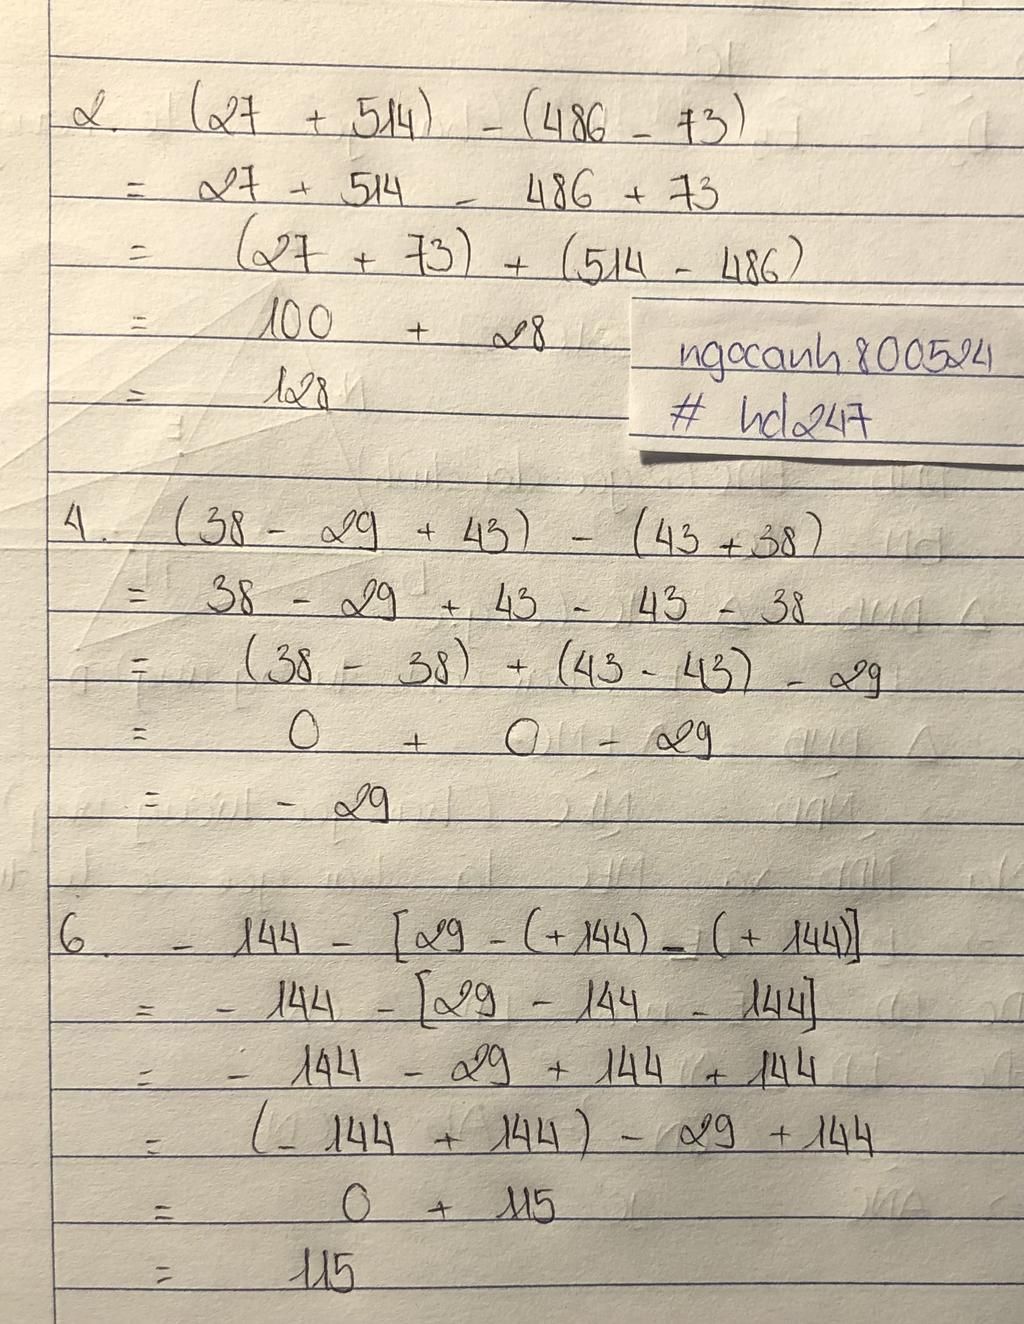 2. (27 + 514) - (486 - 73)
= 27 + 514 - 486 + 73
= (27 + 73) + (514 - 486)
= 100 + 28
= 128
ngocanh800524
# hd247
4. (38 - 29 + 43) - (43 + 38)
= 38 - 29 + 43 - 43 - 38
= (38 - 38) + (43 - 43) - 29
= 0 + 0 - 29
= - 29
6. - 144 - [29 - (+144) - (+ 144)]
= - 144 - [29 - 144 - 144]
= - 144 - 29 + 144 + 144
= (- 144 + 144) - 29 + 144
= 0 + 115
= 115